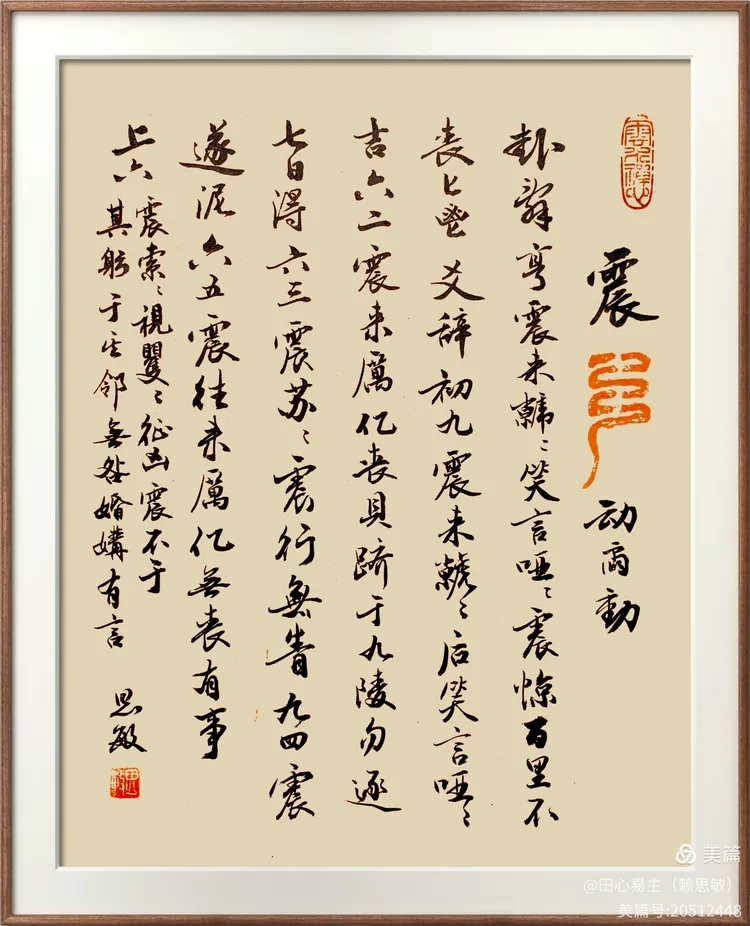 震
动 動
卦辞亨震来虩〻笑言哑〻震惊百里不
喪匕鬯爻辞初九震来虩〻后笑言哑〻
吉六二震来厲亿喪貝跻于九陵勿逐
七日得六三震苏〻震行無眚九四震
遂泥六五震往来厲亿無喪有事
上六震索〻視矍〻征凶震不于
其躬于其邻無咎婚媾有言
思敏
美篇
@田心易主（赖思敏）
美篇号:20512448